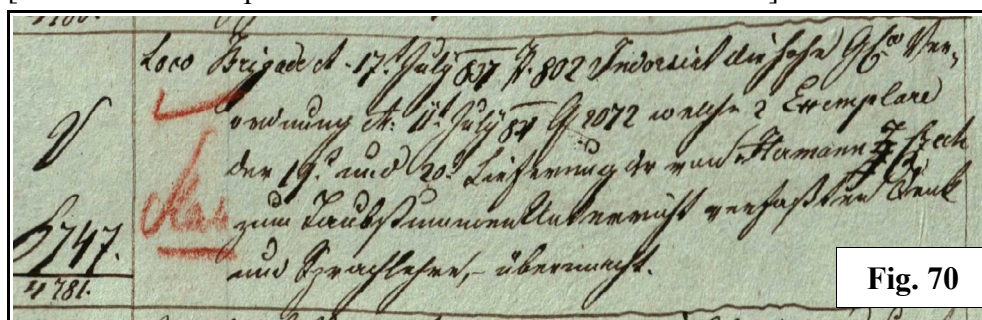 Loco Brigade dt. 17t. July 837 P. 802 Indorsirt die hohe Gen Ver-
ordnung dt. 11t. July 837 G 2072 welche 2 Exemplare
der 19t. und 20t. Lieferung der von Hermann Czech
zum Taubstummen Unterricht verfaßten Denk
und Sprachlehre, - übermacht.
747.
4781.
Fig. 70